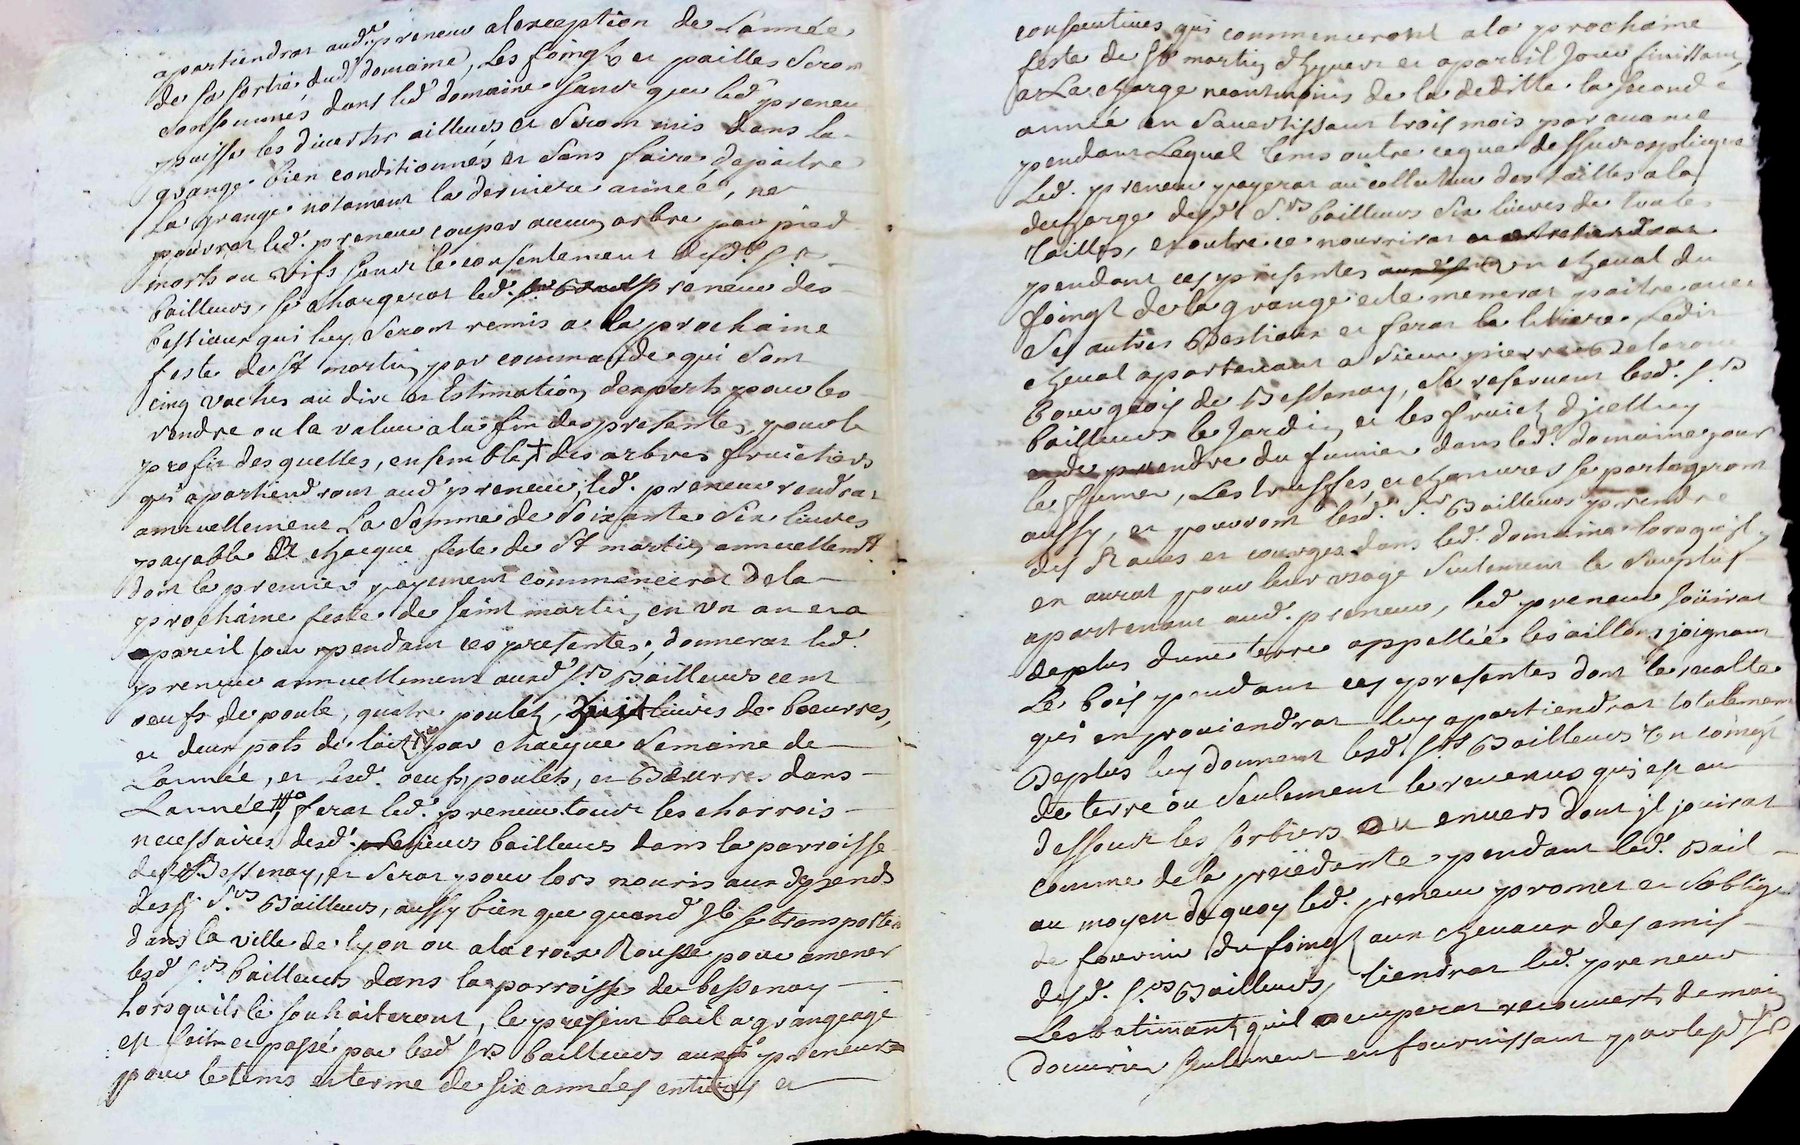 apartiendrat aud. preneur alexception de Lannée
de sa sortie dud. domaine, Les foings et pailles Seron
consommés dans led. domaine sans que led. preneur
puisse les divertir ailleurs et Seront mis dans la
grange bien conditionnés et Sans faire depaitre
La grange notament la derniere année, ne
pourrat led. preneur couper aucun arbre par pied
morts ou vifs sans le consentement desd. Srs
bailleurs, se chargerat led. preneur des
bestiaux qui luy Seront remis a la prochaine
feste de St martin par commande qui Sont
cinq vaches au dire et Estimation dexperts pour les
rendre ou la valeur ala fin des presentes, pour le
profit des quelles, ensemble des arbres fruictiers
qui apartiendront aud. preneur, led. preneur rendrat
annuellement La Somme de Soixante Six livres
payable a chacque feste de St martin annuellemt
dont le premier payement commencerat dela
prochaine feste de saint martin en un an et a
pareil jour pendant ces presentes, donnerat led.
preneur annuellement auxd. Srs Bailleurs cent
oeufs de poule, quatre poulets, huit livres de boeurres,
et deux pots de lait par chacque Semaine de
Lannée, et lesd. oeufs, poulets, et Boeurres dans
Lannée, ferat led. preneur tous les charrois
necessaires desd. sieurs bailleurs dans la parroisse
de Bessenay, et Serat pour lors nouris aux depends
desd. Srs Bailleurs, aussy bien que quand Il se transportera
dans la ville de lyon ou ala croix Rousse pour amener
lesd. Srs bailleurs dans la parroisse de bessenay
Lorsquils le souhaiteront, le present bail a grangeage
est fait et passé par lesd. Srs bailleurs aud. preneur
pour le tems et terme de six années entieres et
consecutives qui commenceront ala prochaine
feste de St martin dhyver et a pareil Jour finissant
a La charge neantmoins de la deditte la seconde
année en Savertissant trois mois par avance
pendant Lequel tems outre ce que dessus expliqué
Led. preneur payerat au collecteur des tailles ala
decharge desd. Srs bailleurs Six livres de toutes
tailles, et outre ce nourrirat
pendant ces presentes un cheval du
foingt de la grange et le menerat paitre avec
Ses autres Bestiaux et ferat la litiere, Ledit
cheval apartenant a sieur pierre Delorme
bourgeois de Bessenay, Se reservent lesd. Srs
bailleurs le Jardin et les fruicts dicelluy
prendre du fumier dans led. domaine pour
le fumer, Les truffes et chanvres se partageront
aussy, et pouvront lesd. Srs Bailleurs prendre
des Raves et courges dans led. domaine lorsquil y
en aurat pour leur usage Seulement le Surplus
apartenant aud. preneur, led. preneur Jouirat
deplus dune terre appellée les aillons joignant
Le bois pendant ces presentes dont la recolte
qui en proviendrat luy apartiendrat totallement
Deplus luy donnent lesd. Srs Bailleurs Un coingt
de terre ou Seulement le revenus qui est au
dessous les sorbiers ou envers dont jl jouirat
comme de la precedente pendant led. Bail
au moyen de quoy led. preneur promet et Soblige
de fournir du foingt aux chevaux des amis
desd. Srs Bailleurs, tiendrat led. preneur
Les batimants quil occuperat recouverts de main
douvrier seulement en fournissant par lesd. Srs